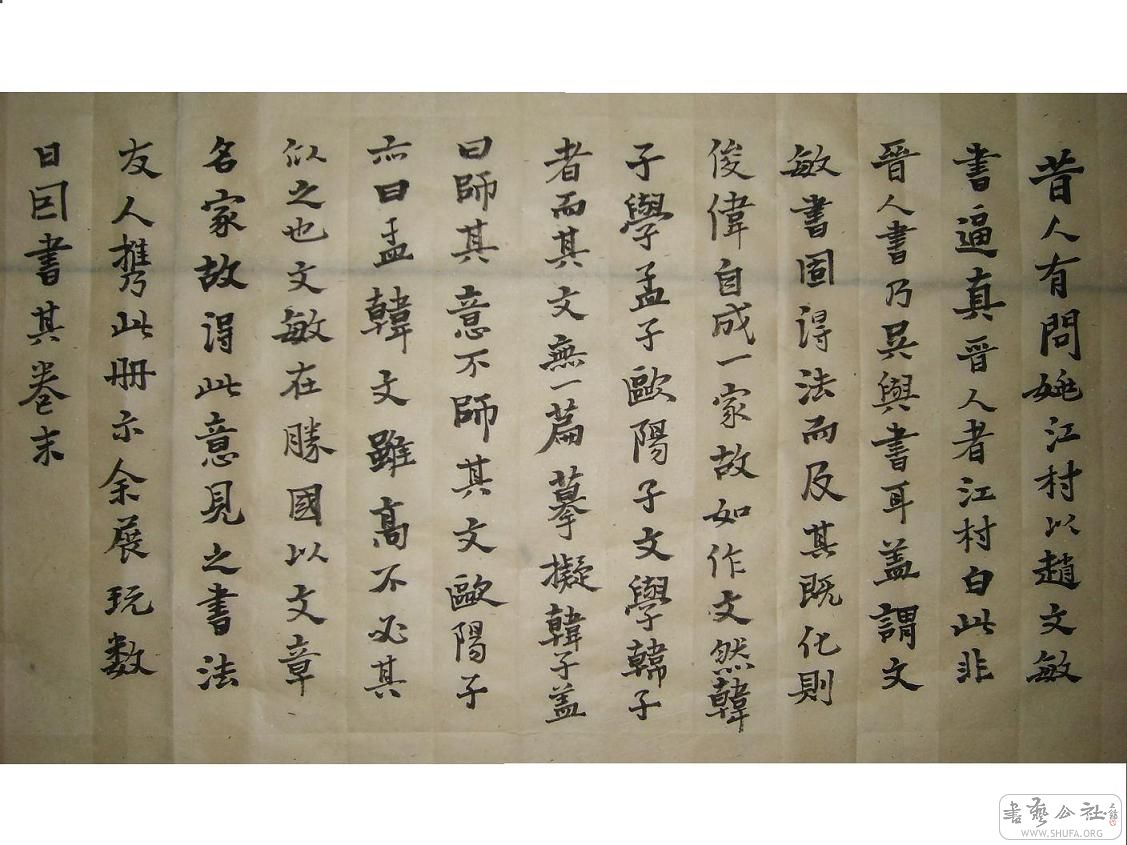 昔人有問姚江村以趙文敏
書逼真晉人者江村白此非
晉人書乃吳興書耳盖謂文
敏書固得法而及其既化則
俊偉自成一家故如作文然韓
子學孟子歐陽子文學韓子
者而其文無一篇摹擬韓子盖
曰師其意不師其文歐陽子
亦曰孟韓文雖高不必其
似之也文敏在勝國以文章
名家故得此意見之書法
友人携此冊示余展玩数
日因書其卷末
書藝公社
WWW.SHUFA.ORG